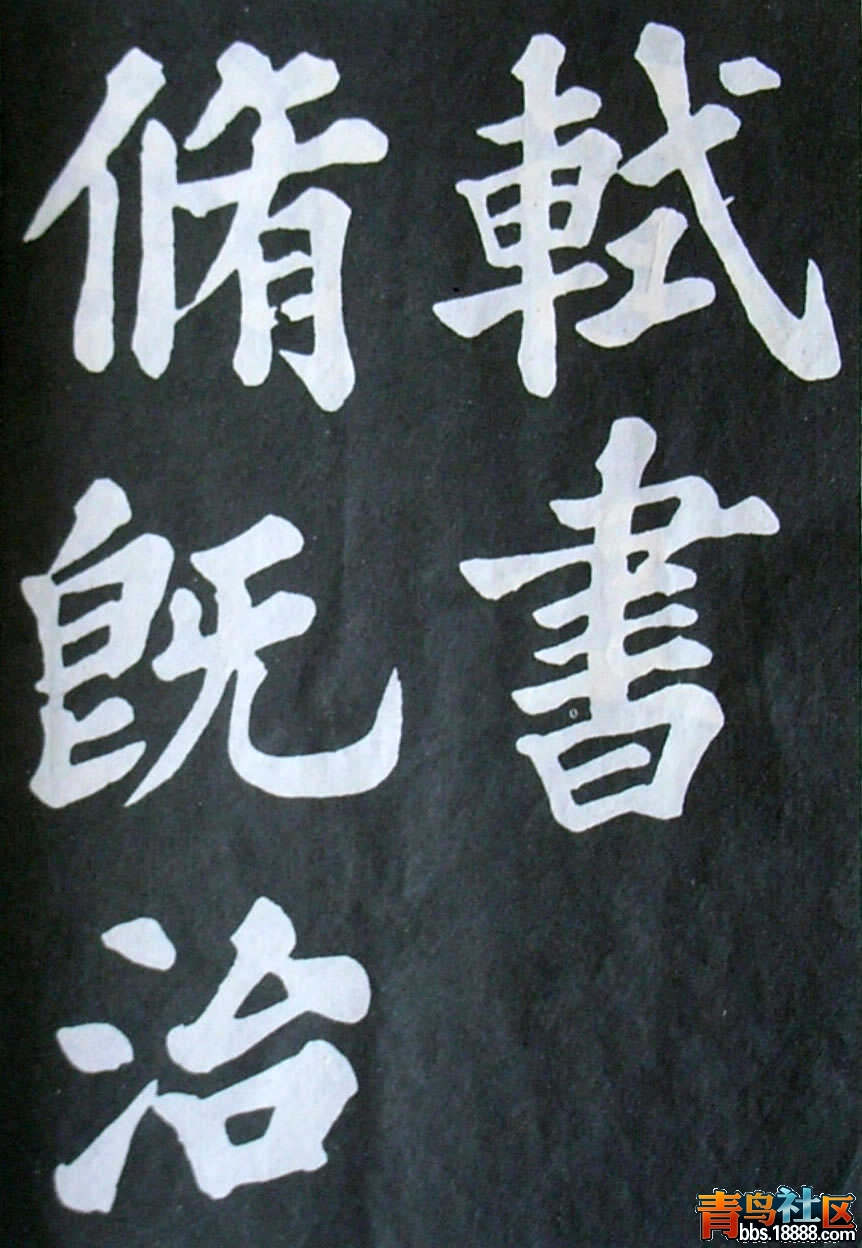 軾書
脩既治
青鸟社区
bbs.18888.com